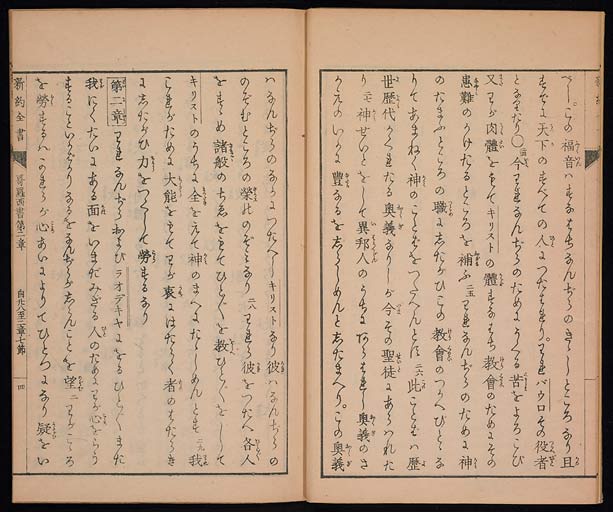 べし。この福音ハすなはちなんぢらのきゝしところなり且
すでに天下のすべての人につたはれり。われパウロその役者
となりたり○今われなんぢらのためにうくる苦をよろこび
又わが肉體をもてキリストの體すなはち教會のためにその
患難のかけたるところを補ふ二五われなんぢらのために神
のたまふところの職にしたがひこの教會のつかへびととな
りてあまねく神のことばをつたへんとす二六此ことばハ歴
世歴代かくれたる奥義なりしが今その聖徒にあらはれた
り二七神せいとをして異邦人のうちにあらはれし奥義のさ
かえのいかに豐なるをしらしめんとしたまへり。この奥義
ハなんぢらのうちにつたへしキリストなり彼ハなんぢらの
のぞむところの榮のぞみなり二八われら彼をつたへ各人
をすゝめ諸般のちゑをもてひとびとを教ひとびとをして
キリストのうちに全をえて神のまへにたゝしめんとす二九我
これがために大能をもてわが衷にはたらく者のはたらき
にしたがひ力をつくして勞するなり
第二章 われなんぢらおよびラオデキヤにをるひとびとまた
我にくたいにある面をいまだみざる人のためにわが心をらう
することいかばかりなるをなんぢらがしらんことを望二わがこころ
を勞するハ心あいによりてひとつになり疑をい
新約全書
哥羅西書第二章
自廿八至二章七節
四